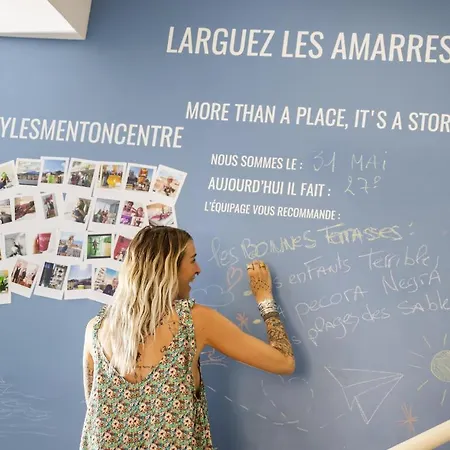 LARGUEZ LES AMARRES
YLESMENTONCENTRE
MORE THAN A PLACE, IT'S A STOR
NOUS SOMMES LE : 31 MAI
AUJOURD'HUI IL FAIT : 27°
L'ÉQUIPAGE VOUS RECOMMANDE :
les BONNES TERRASSES :
s enfants Terrible,
a pecora Negra
s plages des Sable